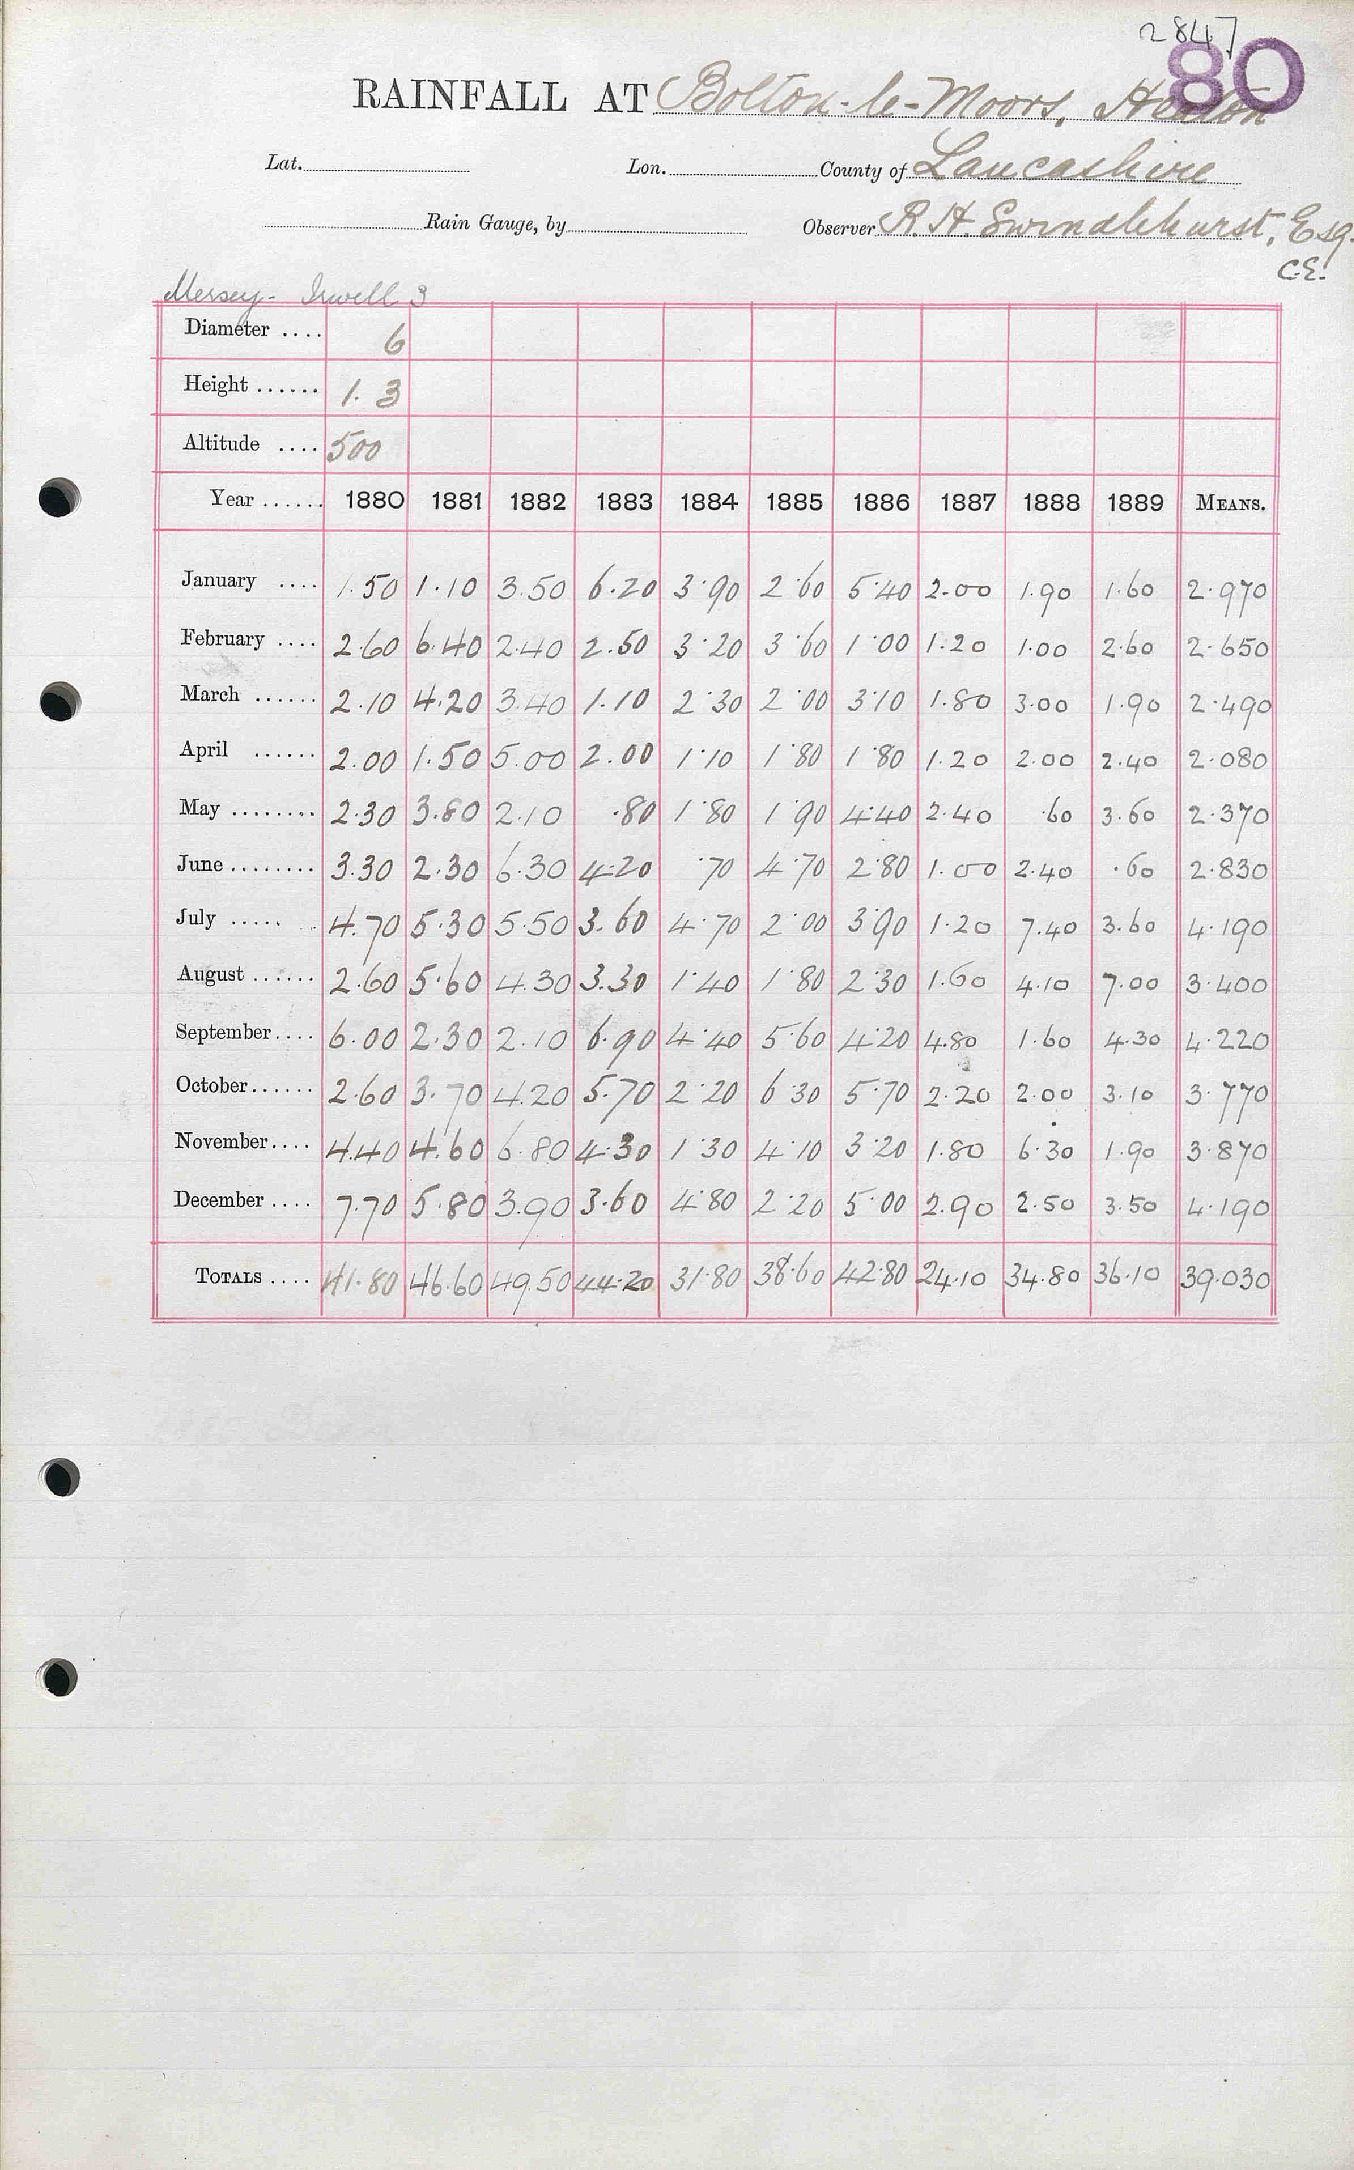 2847
80
RAINFALL AT Bolton-le-Moors, Heaton
Lat. Lon. County of Lancashire
Rain Gauge, by Observer R. H. Swindlehurst, Esq.
C.E.
Mersey - Irwell 3
Diameter .... 6
Height ...... 1. 3
Altitude .... 500
Year ...... 1880 1881 1882 1883 1884 1885 1886 1887 1888 1889 MEANS.
January .... 1.50 1.10 3.50 6.20 3.90 2.60 5.40 2.00 1.90 1.60 2.970
February .... 2.60 6.40 2.40 2.50 3.20 3.60 1.00 1.20 1.00 2.60 2.650
March ...... 2.10 4.20 3.40 1.10 2.30 2.00 3.10 1.80 3.00 1.90 2.490
April ...... 2.00 1.50 5.00 2.00 1.10 1.80 1.80 1.20 2.00 2.40 2.080
May ........ 2.30 3.80 2.10 .80 1.80 1.90 4.40 2.40 .60 3.60 2.370
June ........ 3.30 2.30 6.30 4.20 .70 4.70 2.80 1.00 2.40 .60 2.830
July ..... 4.70 5.30 5.50 3.60 4.70 2.00 3.90 1.20 7.40 3.60 4.190
August ...... 2.60 5.60 4.30 3.30 1.40 1.80 2.30 1.60 4.10 7.00 3.400
September .... 6.00 2.30 2.10 6.90 4.40 5.60 4.20 4.80 1.60 4.30 4.220
October ...... 2.60 3.70 4.20 5.70 2.20 6.30 5.70 2.20 2.00 3.10 3.770
November .... 4.40 4.60 6.80 4.30 1.30 4.10 3.20 1.80 6.30 1.90 3.870
December .... 7.70 5.80 3.90 3.60 4.80 2.20 5.00 2.90 2.50 3.50 4.190
TOTALS .... 41.80 46.60 49.50 44.20 31.80 38.60 42.80 24.10 34.80 36.10 39.030